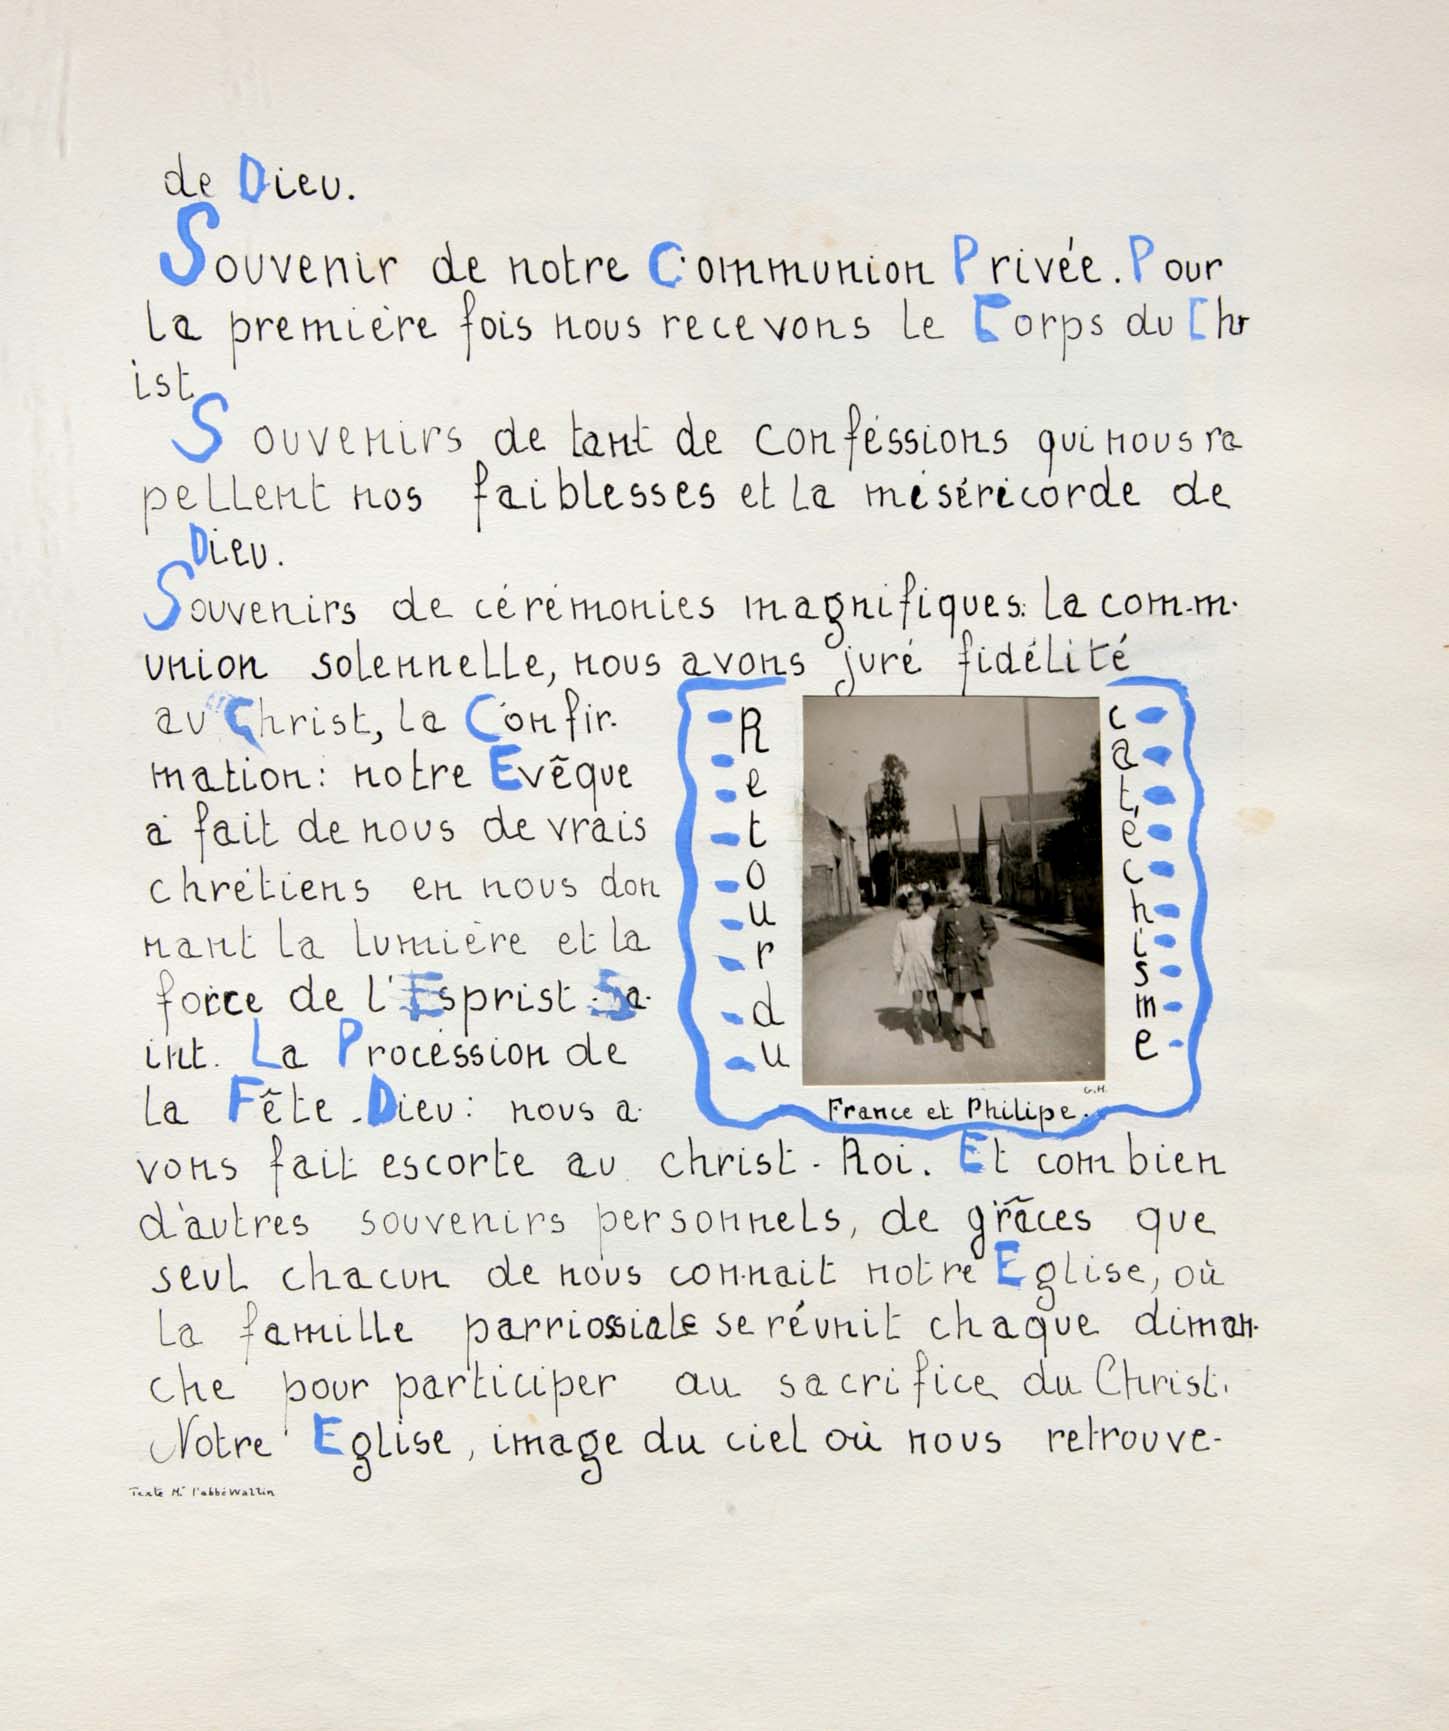 de Dieu.
Souvenir de notre Communion Privée. Pour
la première fois nous recevons le Corps du Chr
ist.
Souvenirs de tant de conféssions qui nous ra
pellent nos faiblesses et la miséricorde de
Dieu.
Souvenirs de cérémonies magnifiques: la com-m-
union solennelle, nous avons juré fidélité
au Christ, la Confir-
mation: notre Evêque
a fait de nous de vrais
chrétiens en nous don
nant la lumière et la
force de l'Esprist-Sa-
int. La Procéssion de
la Fête-Dieu: nous a-
vons fait escorte au christ-Roi. Et combien
d'autres souvenirs personnels, de grâces que
seul chacun de nous con-nait notre Eglise, où
la famille parriossiale se réunit chaque diman-
che pour participer au sacrifice du Christ.
Notre Eglise, image du ciel où nous retrouve-
Texte Mr l'abbé Wallin
Retour du
catéchisme
G.H.
France et Philipe.